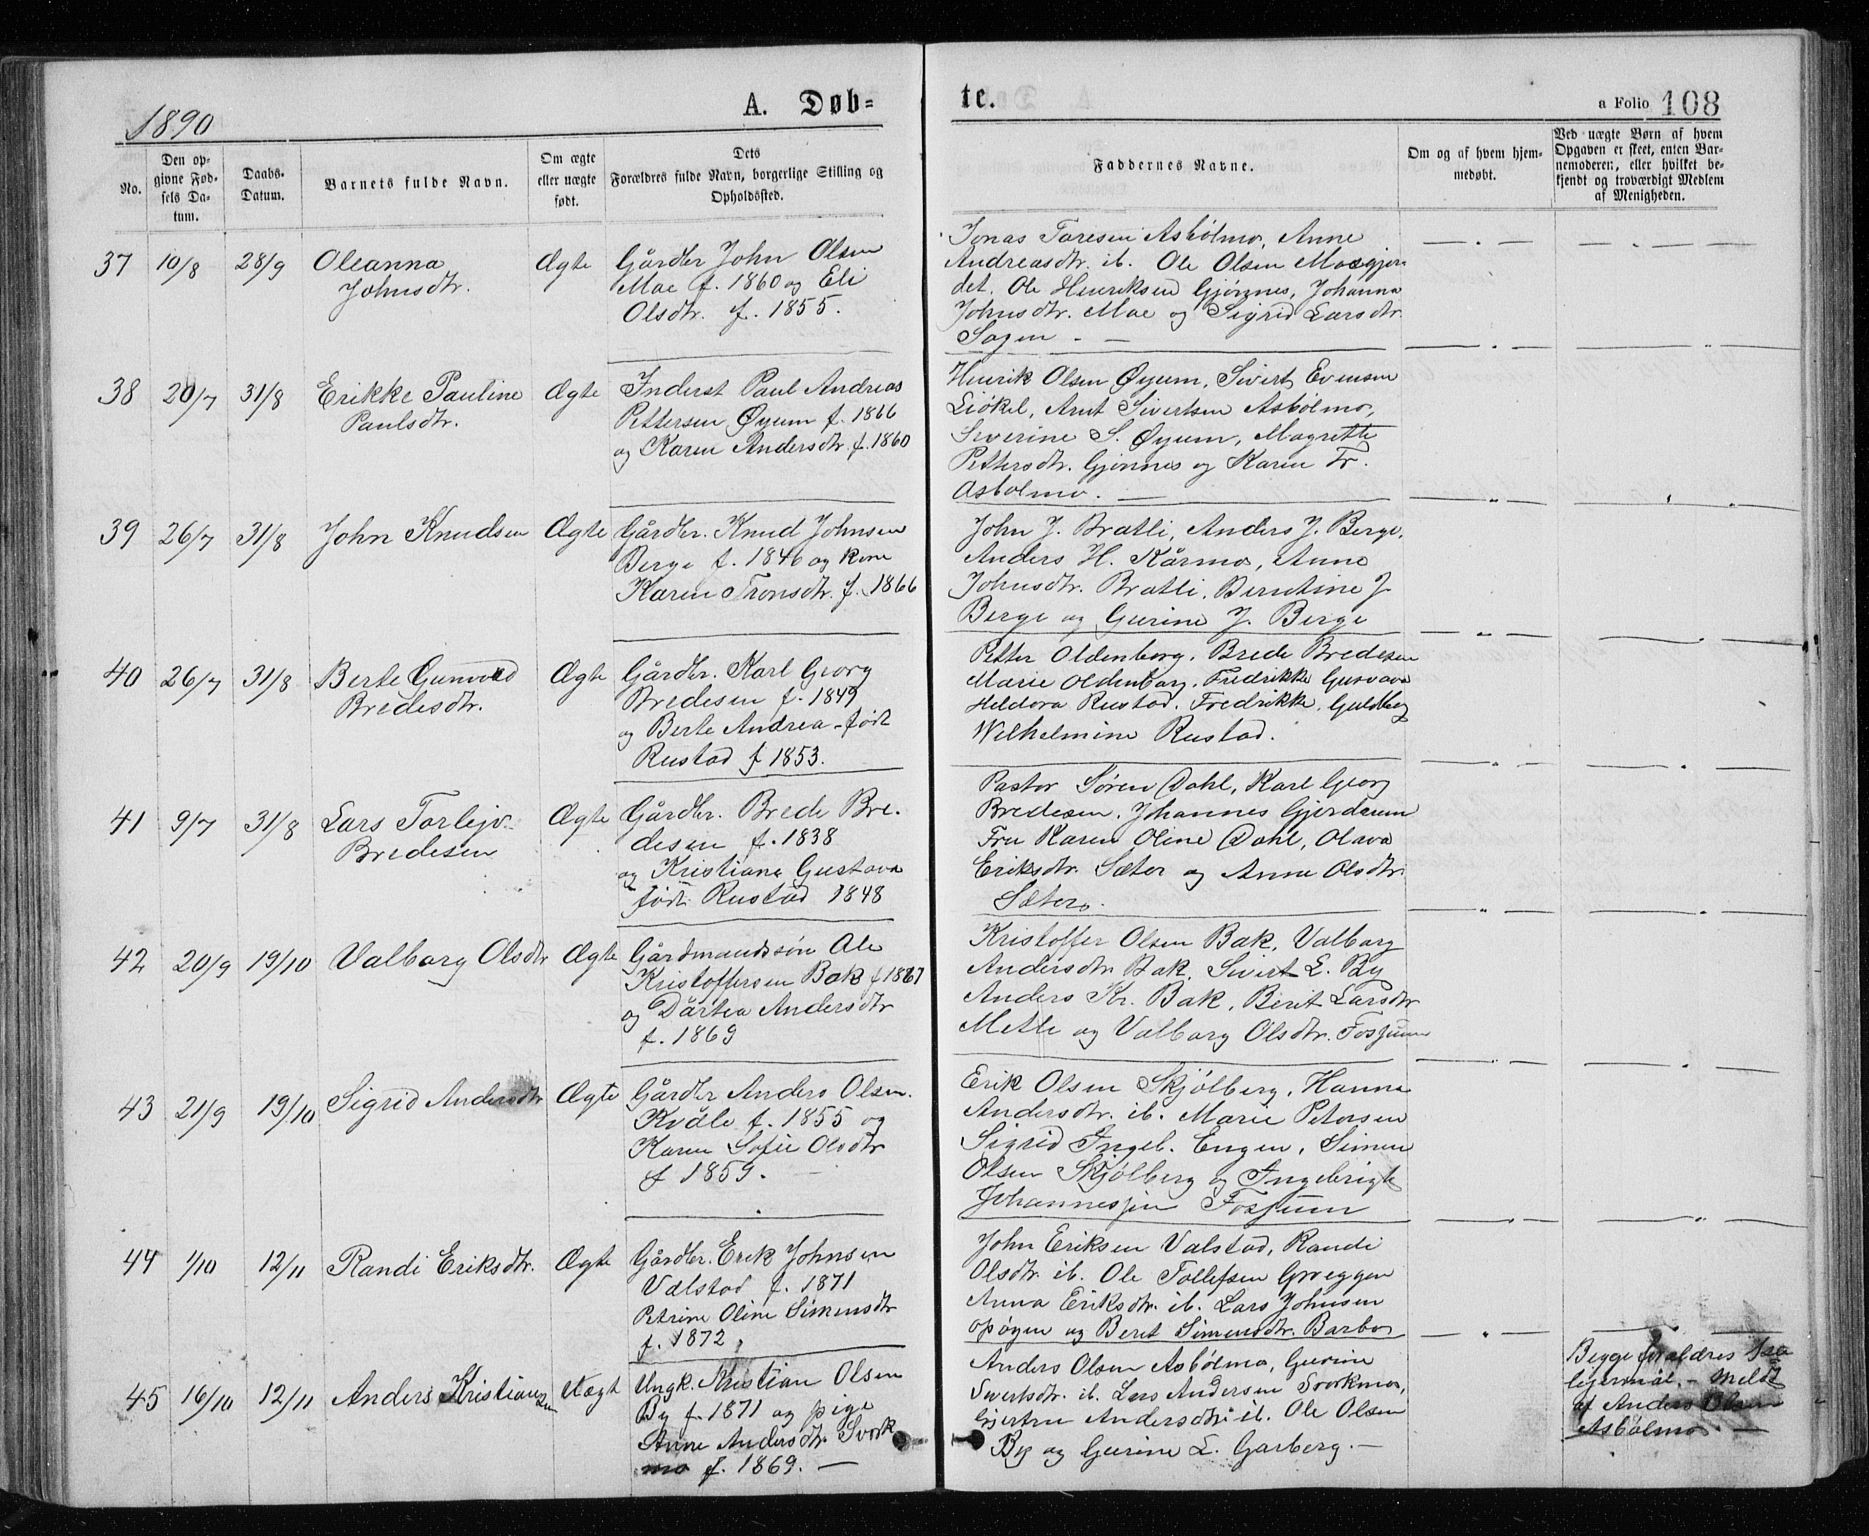 1890
A. Døb-
te.
a Folio 108
No.
Den op-
givne Fød-
sels Da-
tum.
Daabs-
Datum.
Barnets fulde Navn.
Om ægte
eller uægte
født.
Dets
Forældres fulde Navn, borgerlige Stilling og
Opholdssted.
Faddernes Navne.
Om og af hvem hjem-
medøbt.
Ved uægte Børn af hvem
Opgaven er skeet, enten Bar-
nemoderen, eller hvilket be-
kjendt og troværdigt Medlem
af Menigheden.
37 10/8 28/9 Oleanna
Johnsdtr.
Ægte
Gårdbr John Olsen
Moe f. 1860 og Eli
Olsdtr. f. 1855.
Jonas Toresen Asbølmo, Anne
Andreasdtr. ib. Ole Olsen Moegjer
det. Ole Henriksen Gjønnes, Johanna
Johnsdtr. Moe og Sigrid Larsdtr.
Sagen
38 20/7 31/8 Erikke Pauline
Paulsdtr.
Ægte
Inderst Paul Andreas
Pettersen Øyum f. 1866
og Karen Andersdtr. f. 1860
Henrik Olsen Øyum, Sivert Evensen
Liøkel, Arnt Sivertsen Asbølmo,
Severine S. Øyum, Magrette
Pettersdtr. Gjønnes og Karen Tr.
Asbølmo.
39 26/7 31/8 John Knudsen
Ægte
Gårdbr. Knud Johnsen
Berge f. 1846 og kone
Karen Tronsdtr. f. 1866
John J. Bratli, Anders J. Berge,
Anders H. Kårmo, Anne
Johnsdtr. Bratli, Berntine J
Berge og Gurine J. Berge
40 26/7 31/8 Berte Gunvord
Bredesdtr.
Ægte
Gårdbr. Karl Georg
Bredesen f. 1849
og Berte Andrea født
Rustad f 1853.
Petter Oldenborg, Brede Bredesen
Marie Oldenborg, Fredrikke Gusvava
Heldora Rustad. Fredrikke Guldberg
Wilhelmine Rustad.
41 9/7 31/8 Lars Torlejv
Bredesen
Ægte
Gårdbr. Brede Bre-
desen f. 1838
og Kristiane Gustava
født Rustad 1848
Pastor Søren Dahl, Karl Georg
Bredesen, Johannes Gjerdaum
Fru Karen Oline Dahl, Olava
Eriksdtr. Sæter og Anna Olsdtr.
Sæter.
42 20/9 19/10 Valborg Olsdtr
Ægte
Gårdmandssøn Ole
Kristoffersen Bak f 1867
og Dårtea Andersdtr
f. 1869
Kristoffer Olsen Bak, Valborg
Andersdtr Bak, Sivert L. By
Anders Kr. Bak, Berit Larsdtr
Metli og Valborg Olsdtr. Fossum
43 21/9 19/10 Sigrid Andersdtr
Ægte
Gårdbr Anders Olsen.
Kvåle f. 1855 og
Karen Sofie Olsdtr
f 1859.
Erik Olsen Skjølberg, Hanna
Andersdtr. ib. Marie Petersen
Sigrid Ingeb. Engen, Simen
Olsen Skjølberg og Ingebrigt
Johannesen Fossum
44 1/10 12/11 Randi Eriksdtr.
Ægte
Gårdbr. Erik Johnsen
Valstad f. 1871
Petrine Oline Simensdtr
f. 1872
John Eriksen Valstad, Randi
Olsdtr ib. Ole Tollefsen Groeggen
Anna Eriksdtr. ib. Lars Johnsen
opøyen og Berit Simensdtr. Barbo
45 16/10 12/11 Anders Kristian
sen
Uægt
Ungk. Kristian Olsen
By f. 1871 og pige
Anne Andersdtr. Svork
mo f. 1869.
Anders Olsen Asbølmo, Gurine
Sivertsdtr. ib. Lars Andersen Svorkmo,
Gjertru Andersdtr. ib. Ole Olsen
By og Gurine L. Garberg.
Begge forældres 1ste
lejermål. - Meldt
af Anders Olsen
Asbølmo.